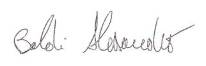 Baldi Alessandro